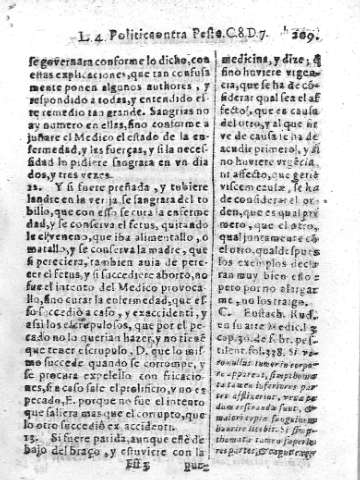 L. 4. Politica contra Peste. C. 8. D. 7. 209.
se governara conforme lo dicho, con
estas explicaciones, que tan confusa
mente ponen algunos authores, y
respondido a todas, y entendido es
te remedio tan grande. Sangrias no
ay numero en ellas, sino conforme a
jusiare el Medico el estado de la en-
fermedad, y las fuerças, y si la necesi
sidad lo pidiere sangrara en vn dia
dos, y tres veces.
12. Y si fuere preñada, y tubiere
landre en la verija se sangrara del to
billo, que con esso se cura la enferme
dad, y se conserva el fetus, quitando
le el veneno, que iba alimentallo, o
matallo, y se conserva la madre, que
si pereciera, tambien avia de pere-
cer el fetus, y si succediere aborto, no
fue el intento del Medico provoca-
llo, sino curar la enfermedad, que es-
so succediò a caso, y ex accidenti, y
assi los escrupulosos, que por el pe-
cado no lo querian hazer, y no tienē
que tener escrupulo, D. que lo mis
mo succede quando se corrompe, y
se procara expelello con fricaciones,
si a caso sale el prolifico, y no es
pecado, E. porque no fue el intento
que saliera mas que el corrupto, que
lo otro succediò ex accidenti.
13. Si fuere parida, aunque estè de
bajo del braço, y estuviere con la
Eee 3 pur-
medicina, y dize, q̃
sino huviere virgen-
cia, que se ha de cō-
siderar qual sea el af
fecto, que es causa
del otro, y al que tie
ne de causa se ha de
acudir primero, y si
no huviere vrgēcia
ni affecto, que genere
viscem causæ, se ha
de considerar el or-
den, que es qual pri
mero, que el otro,
qual juntamente cō
el otro, qual despues
los exemplos decla
ran muy bien esto e
pero por no alargar
me, no los traigo.
C. Eustach. Rud.
en su arte Medic. l. 3
cap. 30. de febr. pes-
tilent. fol. 338. Si ve-